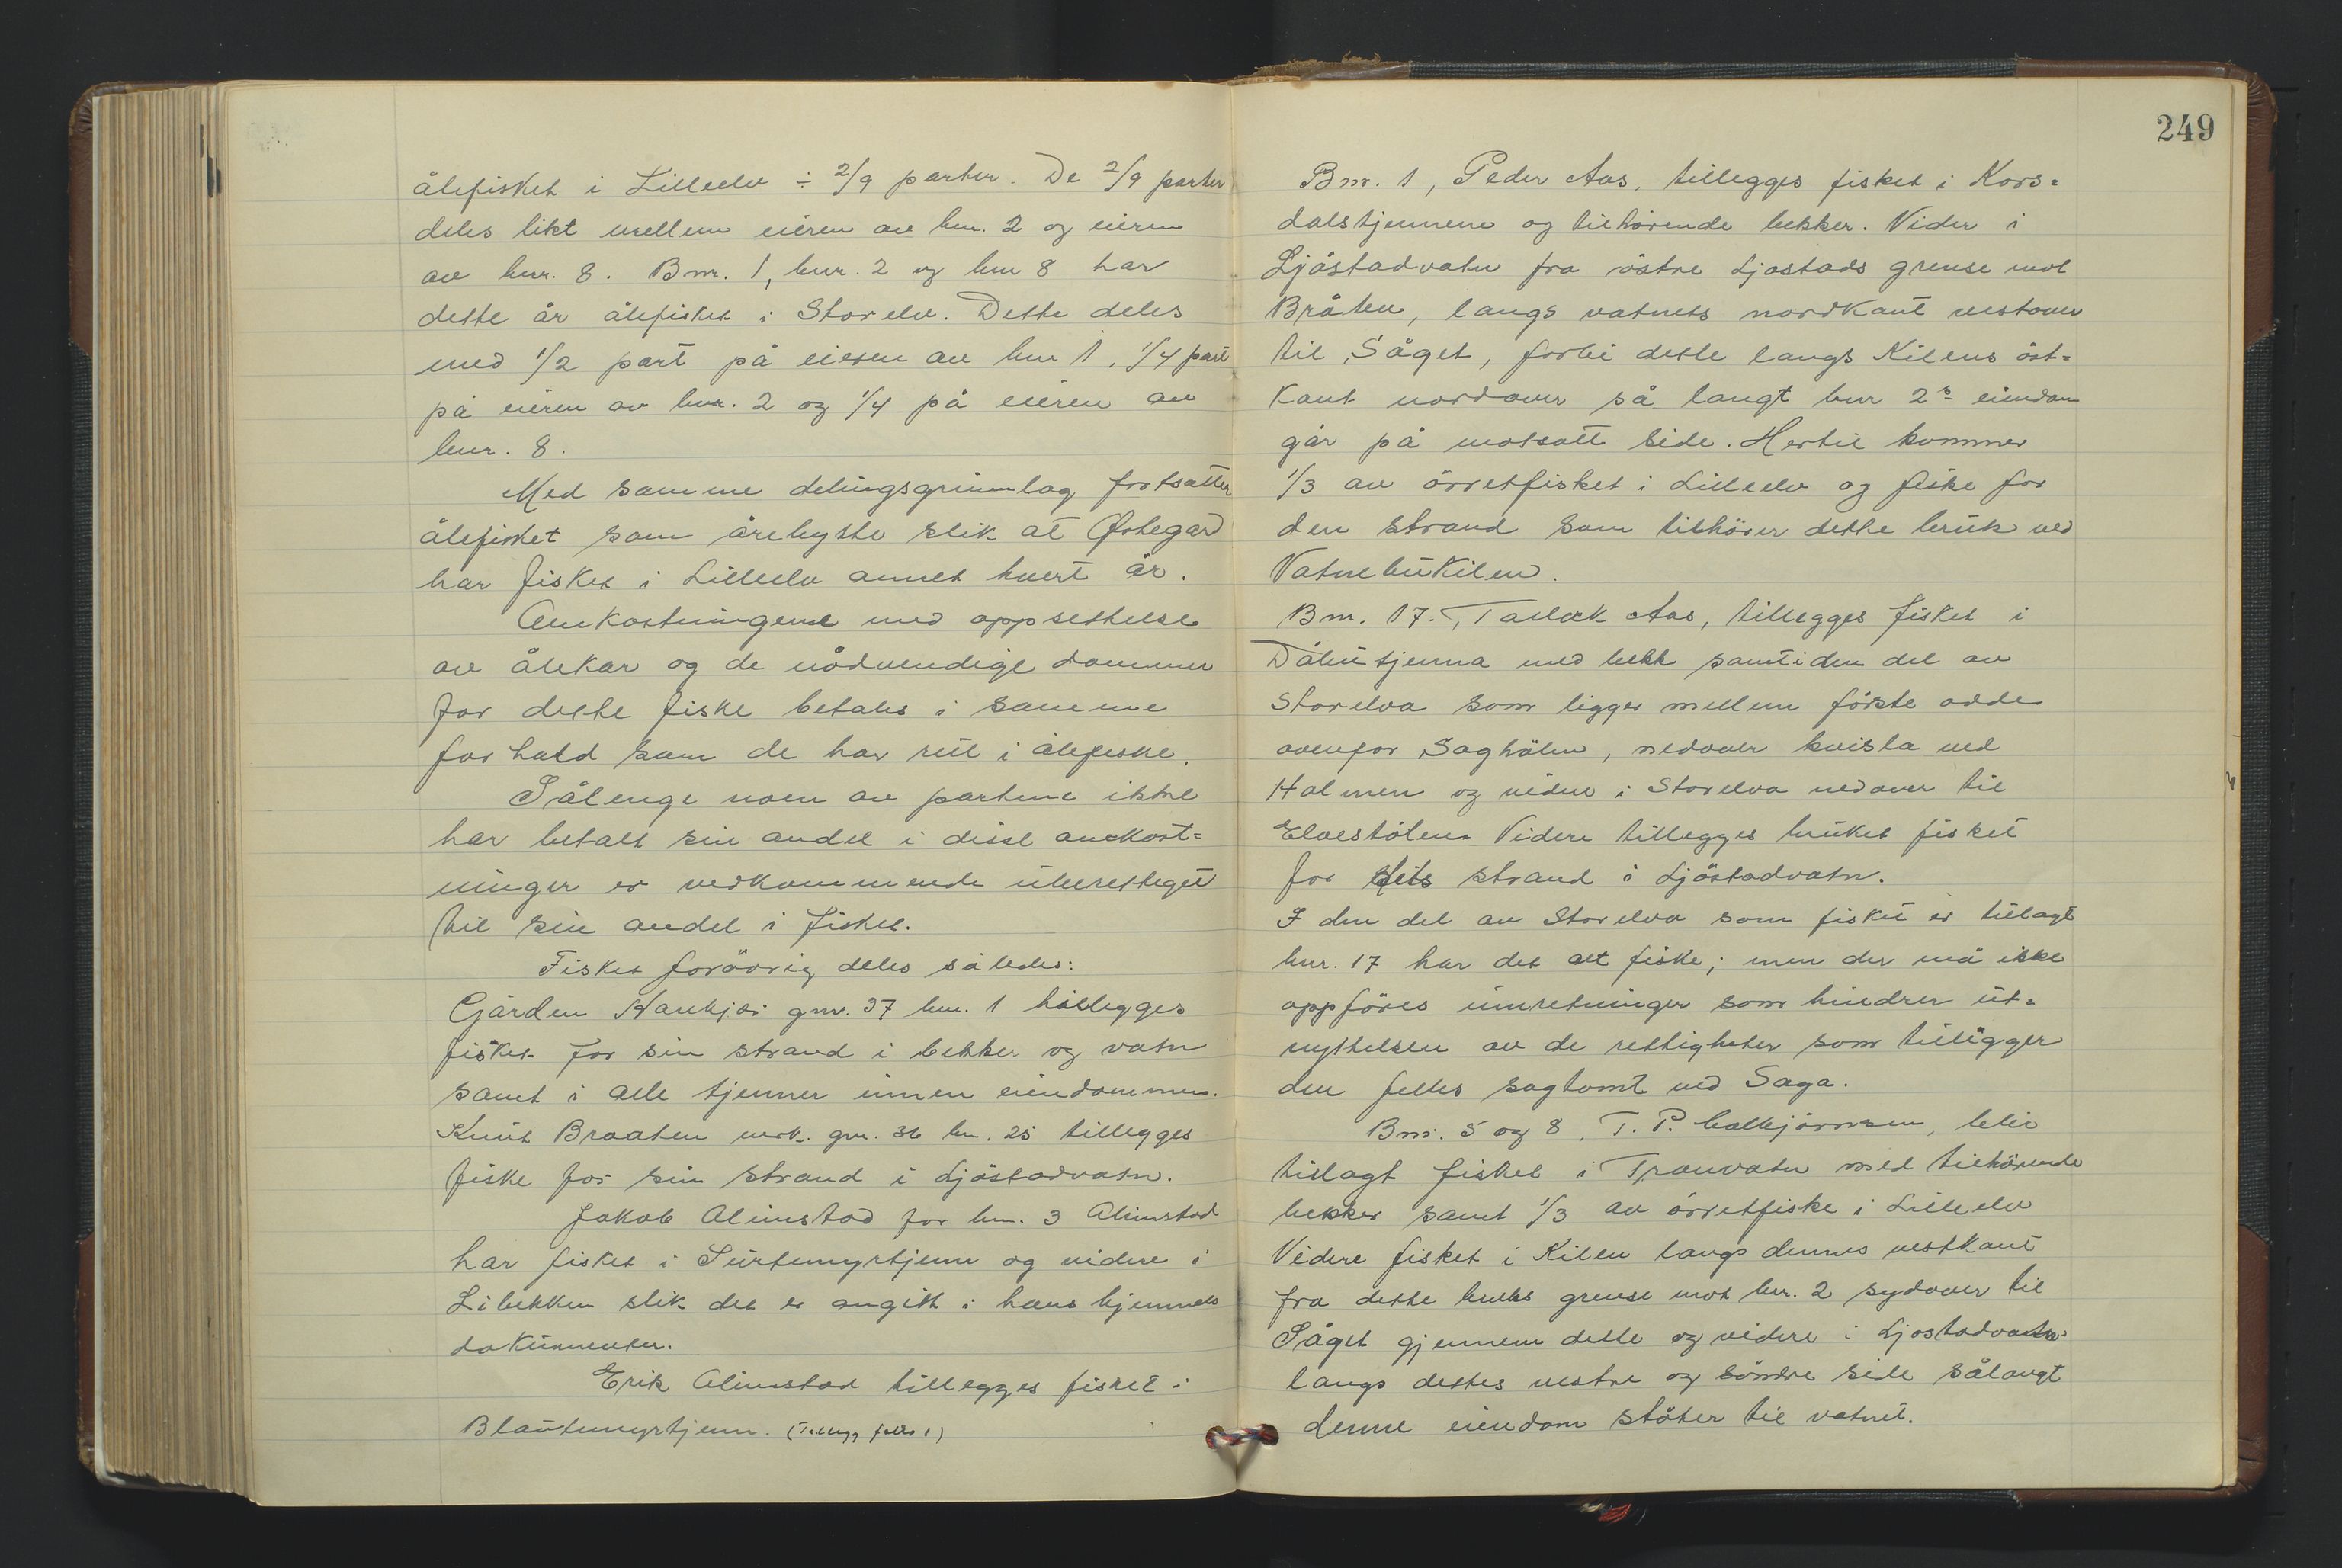 ålefisket i Lilleelv ÷ 2/9 parter. De 2/9 parter
deles likt mellem eieren av bnr. 2 og eieren
av bnr. 8. Bnr. 1, bnr. 2 og bnr 8 har
dette år ålefisket i Storelv. Dette deles
med 1/2 part på eieren av bnr 1, 1/4 part
på eieren av bnr. 2 og 1/4 på eieren av
bnr. 8.
Med samme delingsgrunnlag fortsætter
ålefisket som årebyste slik at Østegard
har fisket i Lilleelv annet hvert år.
Omkostningene med oppsettelse
av ålekar og de nödvendige dammer
for dette fiske betales i samme
forhold som de har rett i ålefiske.
Sålenge noen av partene ikke
har betalt sin andel i disse omkost=
ninger er vedkommende uberettiget
til sin andel i fisket.
Fisket forövrig deles således:
Gården Haukjær gnr. 37 bnr. 1 tillegges
fisket for sin strand i bekker og vatn
samt i alle tjenner innen eiendommen.
Knut Braaten gnr. 36 bnr. 25 tillegges
fiske for sin strand i Ljöstadvatn.
Jakob Alimstad for bnr. 3 Alimstad
har fisket i Surtemyrtjenn og videre i
Libekken slik det er angitt i hans hjemmels
dokumenter.
Erik Alimstad tillegges fisket i
Blautemyrtjenn. (Tillegg folio 1)
249
Bnr. 1, Peder Aas, tillegges fisket i Kors=
dalstjennene og tilhörende bekker. Vider i
Ljöstadvatn fra östre Ljostads grense mot
Bråten, langs vatnets nordkant vestover
til Såget, forbi dette langs Kilens öst=
kant nordover så langt bnr 2s eiendom
går på motsatt side. Hertil kommer
1/3 av örretfisket i Lilleelv og fiske for
den strand som tilhörer dette bruk ved
Vatnebukilen.
Bnr. 17., Tallak Aas, tillegges fisket i
Dalutjenna med bekk samt i den del av
Storelva som ligger mellem förste odde
ovenfor Saghölen, nedover kvisla ved
Holmen og videre i Storelva nedover til
Elvestölen. Videre tillegges bruket fisket
for sits strand i Ljöstadvatn.
I den del av Storelva som fisket er tillagt
bnr. 17 har det alt fiske; men der må ikke
oppföres innretninger som hindrer ut=
nyttelsen av de rettigheter som tilligger
den felles sagtomt ved Saga.
Bnr. 5 og 8, T. P. Colbjörnsen, blir
tillagt fisket i Tranvatn med tilhörende
bekker samt 1/3 av örretfiske i Lilleelv
Videre fisket i Kilen langs dennes vestkant
fra dette bruks grense mot bnr. 2 sydover til
Såget gjennem dette og videre i Ljostadvatn
langs dettes vestre og söndre side sålangt
denne eiendom stöter til vatnet.